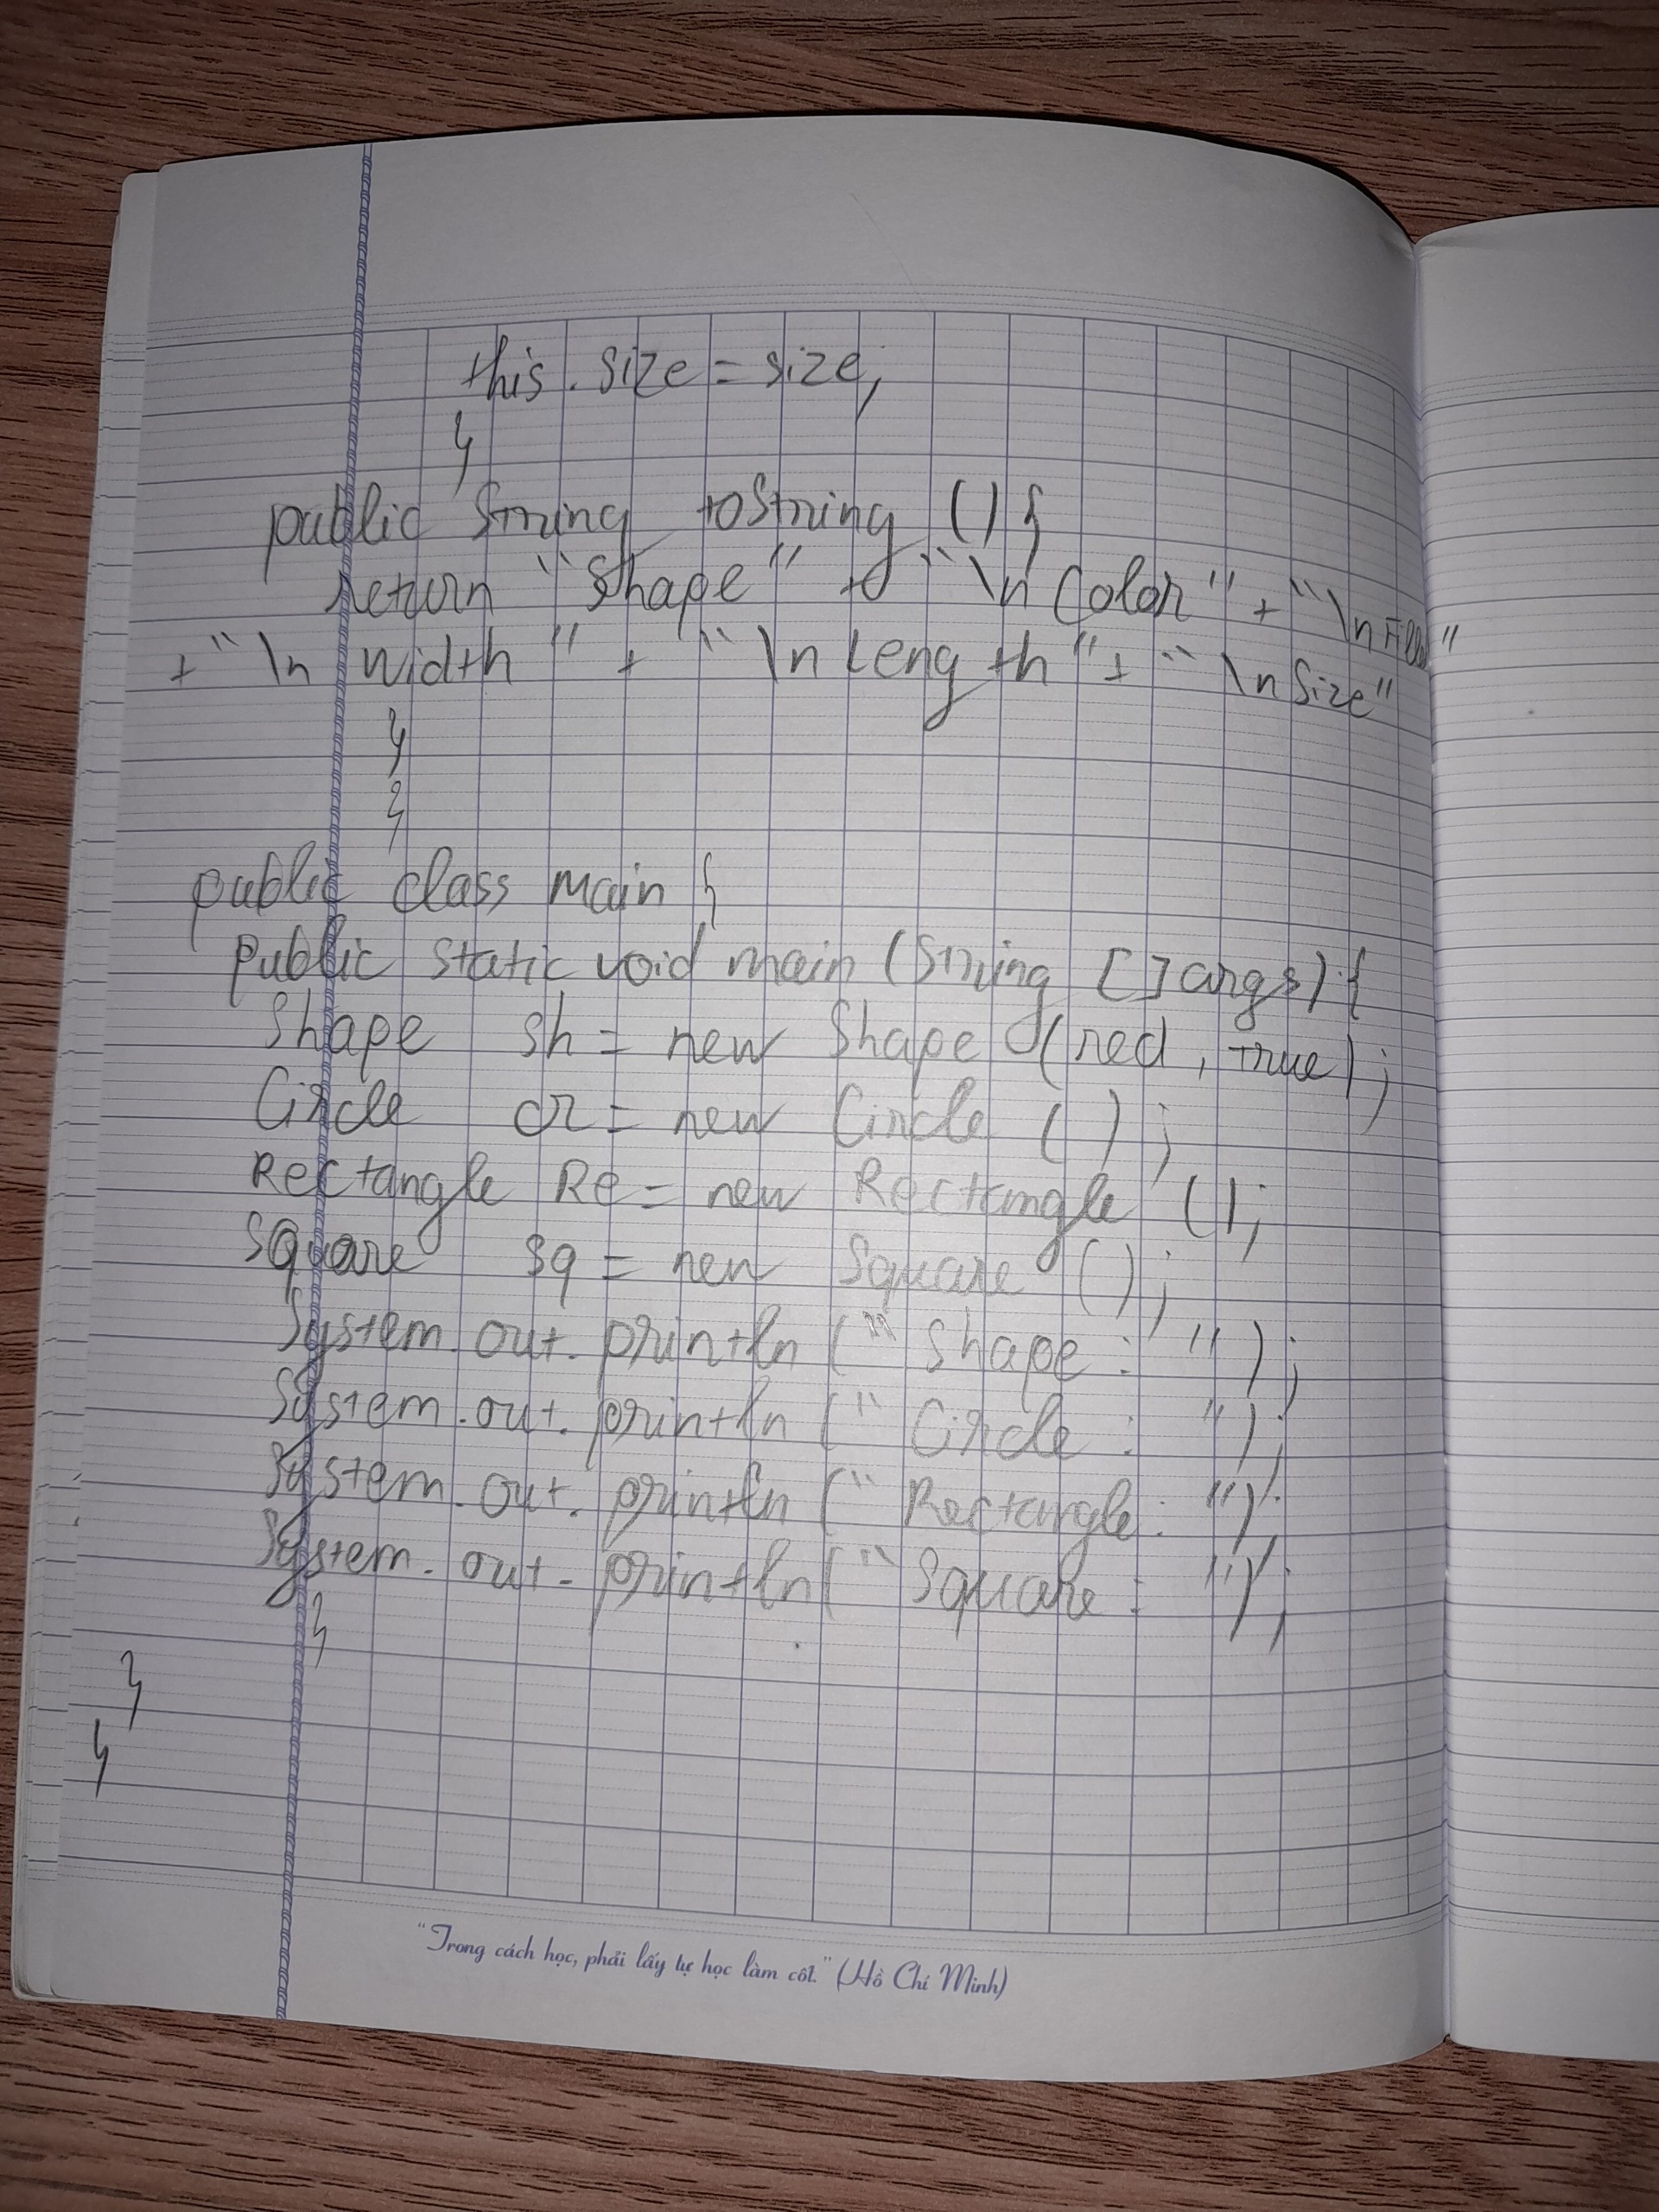 this.size = size;
}
public String toString () {
return "Shape" + "\n Color" + "\n Filled"
+ "\n width" + "\n Length" + "\n Size"
}
}
public class main {
public static void main (String [] args) {
Shape sh = new Shape (red, true);
Circle cr = new Circle ( );
Rectangle Re = new Rectangle ();
Square sq = new Square ();
System.out.println (" Shape : ");
System.out.println (" Circle : ");
System.out.println (" Rectangle : ");
System.out.println (" Square : ");
}
}
}
"Trong cách học, phải lấy tự học làm cốt." (Hồ Chí Minh)